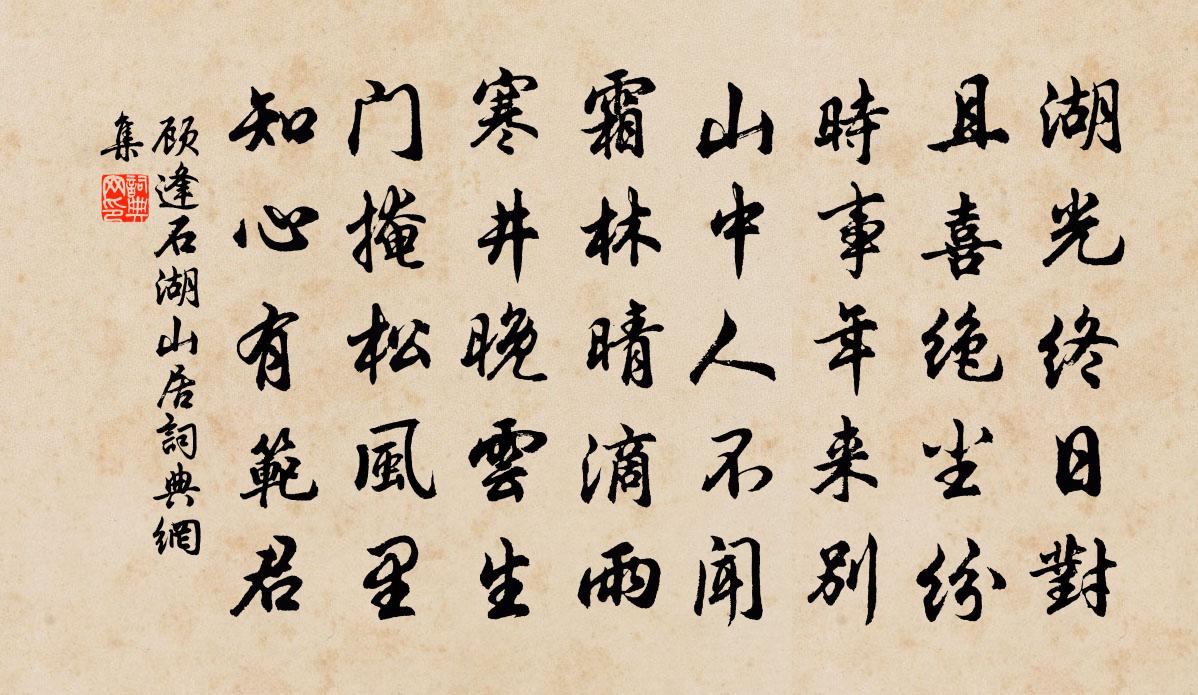 湖光终日對
且喜绝尘纷
時事年来别
山中人不闻
霜林晴滴雨
寒井晚雲生
门掩松風里
知心有範君
顾逢石湖山居詞典網
集
詞典
网印